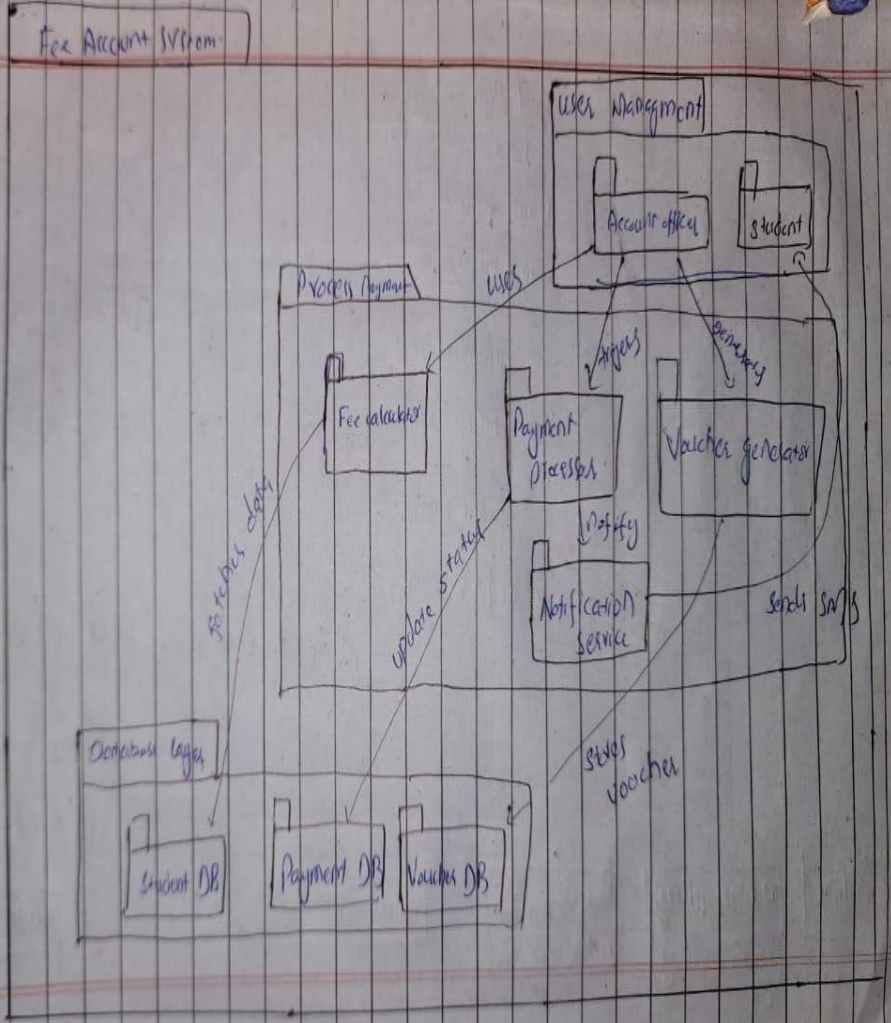 Fee Account System
User Managment
Account officer
Student
Process Payment
uses
trigers
generates
Fee calculator
Payment
processor
Voucher generator
fetches data
update status
Notify
Notification
service
sends SMS
stores
voucher
Database layer
Student DB
Payment DB
Voucher DB